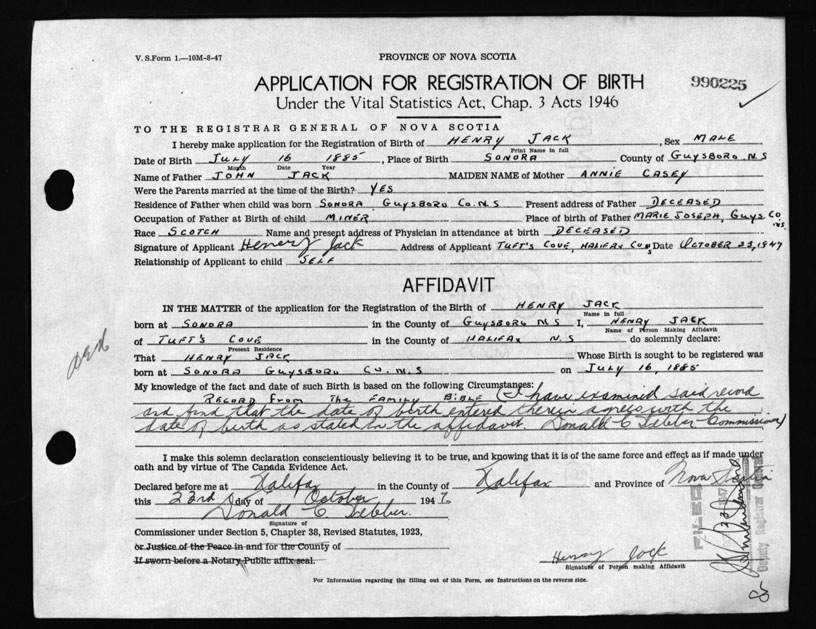 V. S. Form 1.—10M-8-47
PROVINCE OF NOVA SCOTIA
APPLICATION FOR REGISTRATION OF BIRTH
990225
Under the Vital Statistics Act, Chap. 3 Acts 1946
TO THE REGISTRAR GENERAL OF NOVA SCOTIA
I hereby make application for the Registration of Birth of HENRY JACK, Sex MALE
Print Name in full
Date of Birth JULY 16 1885, Place of Birth SONORA County of GUYSBORO. N.S
Month Date Year
Name of Father JOHN JACK MAIDEN NAME of Mother ANNIE CASEY
Were the Parents married at the time of the Birth? YES
Residence of Father when child was born SONORA GUYSBORO CO. N.S Present address of Father DECEASED
Occupation of Father at Birth of child MINER Place of birth of Father MARIE JOSEPH, GUYS. CO. N.S.
Race SCOTCH Name and present address of Physician in attendance at birth DECEASED
Signature of Applicant Henery Jack Address of Applicant TUFT'S COVE, HALIFAX CO. NS Date OCTOBER 23, 1947
Relationship of Applicant to child SELF
AFFIDAVIT
IN THE MATTER of the application for the Registration of the Birth of HENRY JACK
Name in full
born at SONORA in the County of GUYSBORO N S I, HENRY JACK
Name of Person Making Affidavit
of TUFT'S COVE in the County of HALIFAX N.S do solemnly declare:
Present Residence
That HENRY JACK Whose Birth is sought to be registered was
born at SONORA GUYSBORO CO. N.S on JULY 16, 1885
My knowledge of the fact and date of such Birth is based on the following Circumstances:
RECORD FROM THE FAMILY BIBLE (I have examined said record
and find that the date of birth entered therein agrees with the
date of birth as stated in the affidavit. Donald C Commissioner)
I make this solemn declaration conscientiously believing it to be true, and knowing that it is of the same force and effect as if made under
oath and by virtue of The Canada Evidence Act.
Declared before me at Halifax in the County of Halifax and Province of Nova Scotia
this 23rd day of October 1947
Donald C
Signature of
Commissioner under Section 5, Chapter 38, Revised Statutes, 1923,
or Justice of the Peace in and for the County of
If sworn before a Notary Public affix seal.
Henry Jack
Signature of Person making Affidavit
FILED
Deputy Registrar
For Information regarding the filling out of this Form, see Instructions on the reverse side.